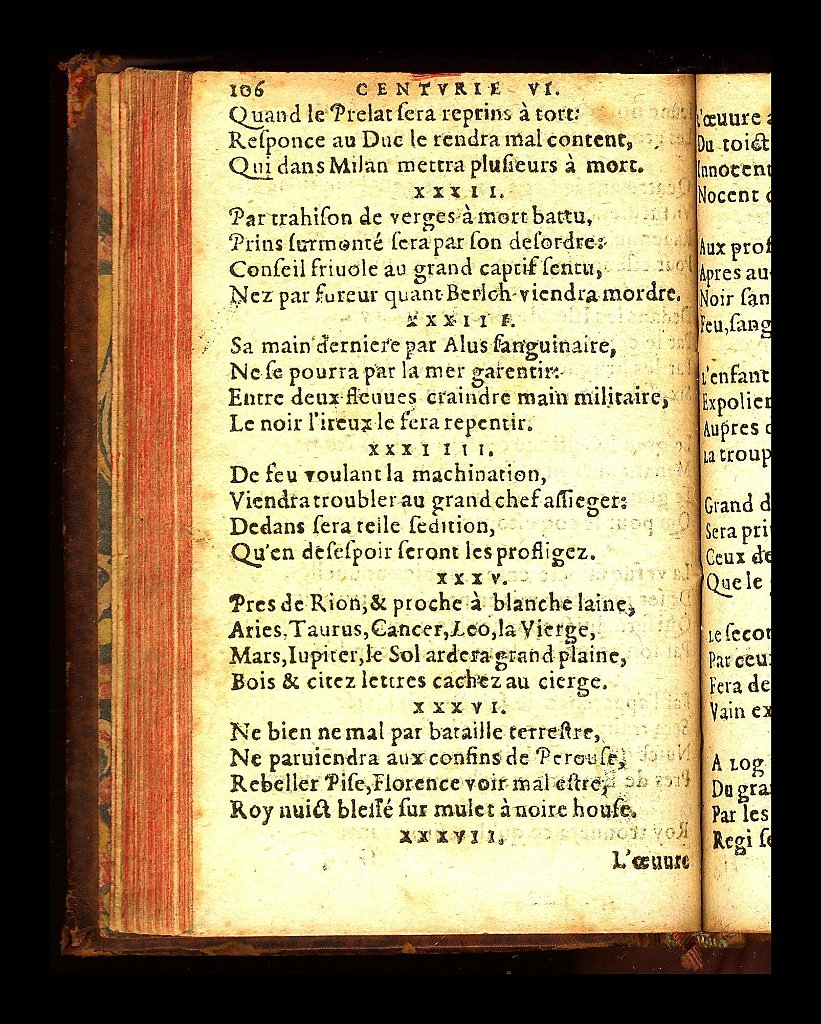 106 CENTVRIE VI.
Quand le Prelat ſera reprins à tort:
Reſponce au Duc le rendra mal content,
Qui dans Milan mettra pluſieurs à mort.
XXXII.
Par trahiſon de verges à mort battu,
Prins ſurmonté ſera par ſon deſordre:
Conſeil friuole au grand captif ſentu,
Nez par fureur quant Berich viendra mordre.
XXXIII.
Sa main derniere par Alus ſanguinaire,
Ne ſe pourra par la mer garentir:
Entre deux fleuues craindre main militaire,
Le noir l'ireux le fera repentir.
XXXIIII.
De feu voulant la machination,
Viendra troubler au grand chef aſſieger:
Dedans ſera telle ſedition,
Qu'en deſeſpoir ſeront les profligez.
XXXV.
Pres de Rion, & proche à blanche laine,
Aries, Taurus, Cancer, Leo, la Vierge,
Mars, Iupiter, le Sol ardera grand plaine,
Bois & citez lettres cachez au cierge.
XXXVI.
Ne bien ne mal par bataille terreſtre,
Ne paruiendra aux confins de Perouſe,
Rebeller Piſe, Florence voir mal eſtre,
Roy nuict bleſſé ſur mulet à noire houſe.
XXXVII.
L'œuure
L'œuure
Du toict
Innocent
Nocent
Aux prof
Apres au
Noir ſan
Feu, ſang
L'enfant
Expolier
Aupres
La troup
Grand d
Sera pri
Ceux de
Que le
Le ſecon
Par ceux
Fera de
Vain ex
A LOG
Du gra
Par les
Regi ſe